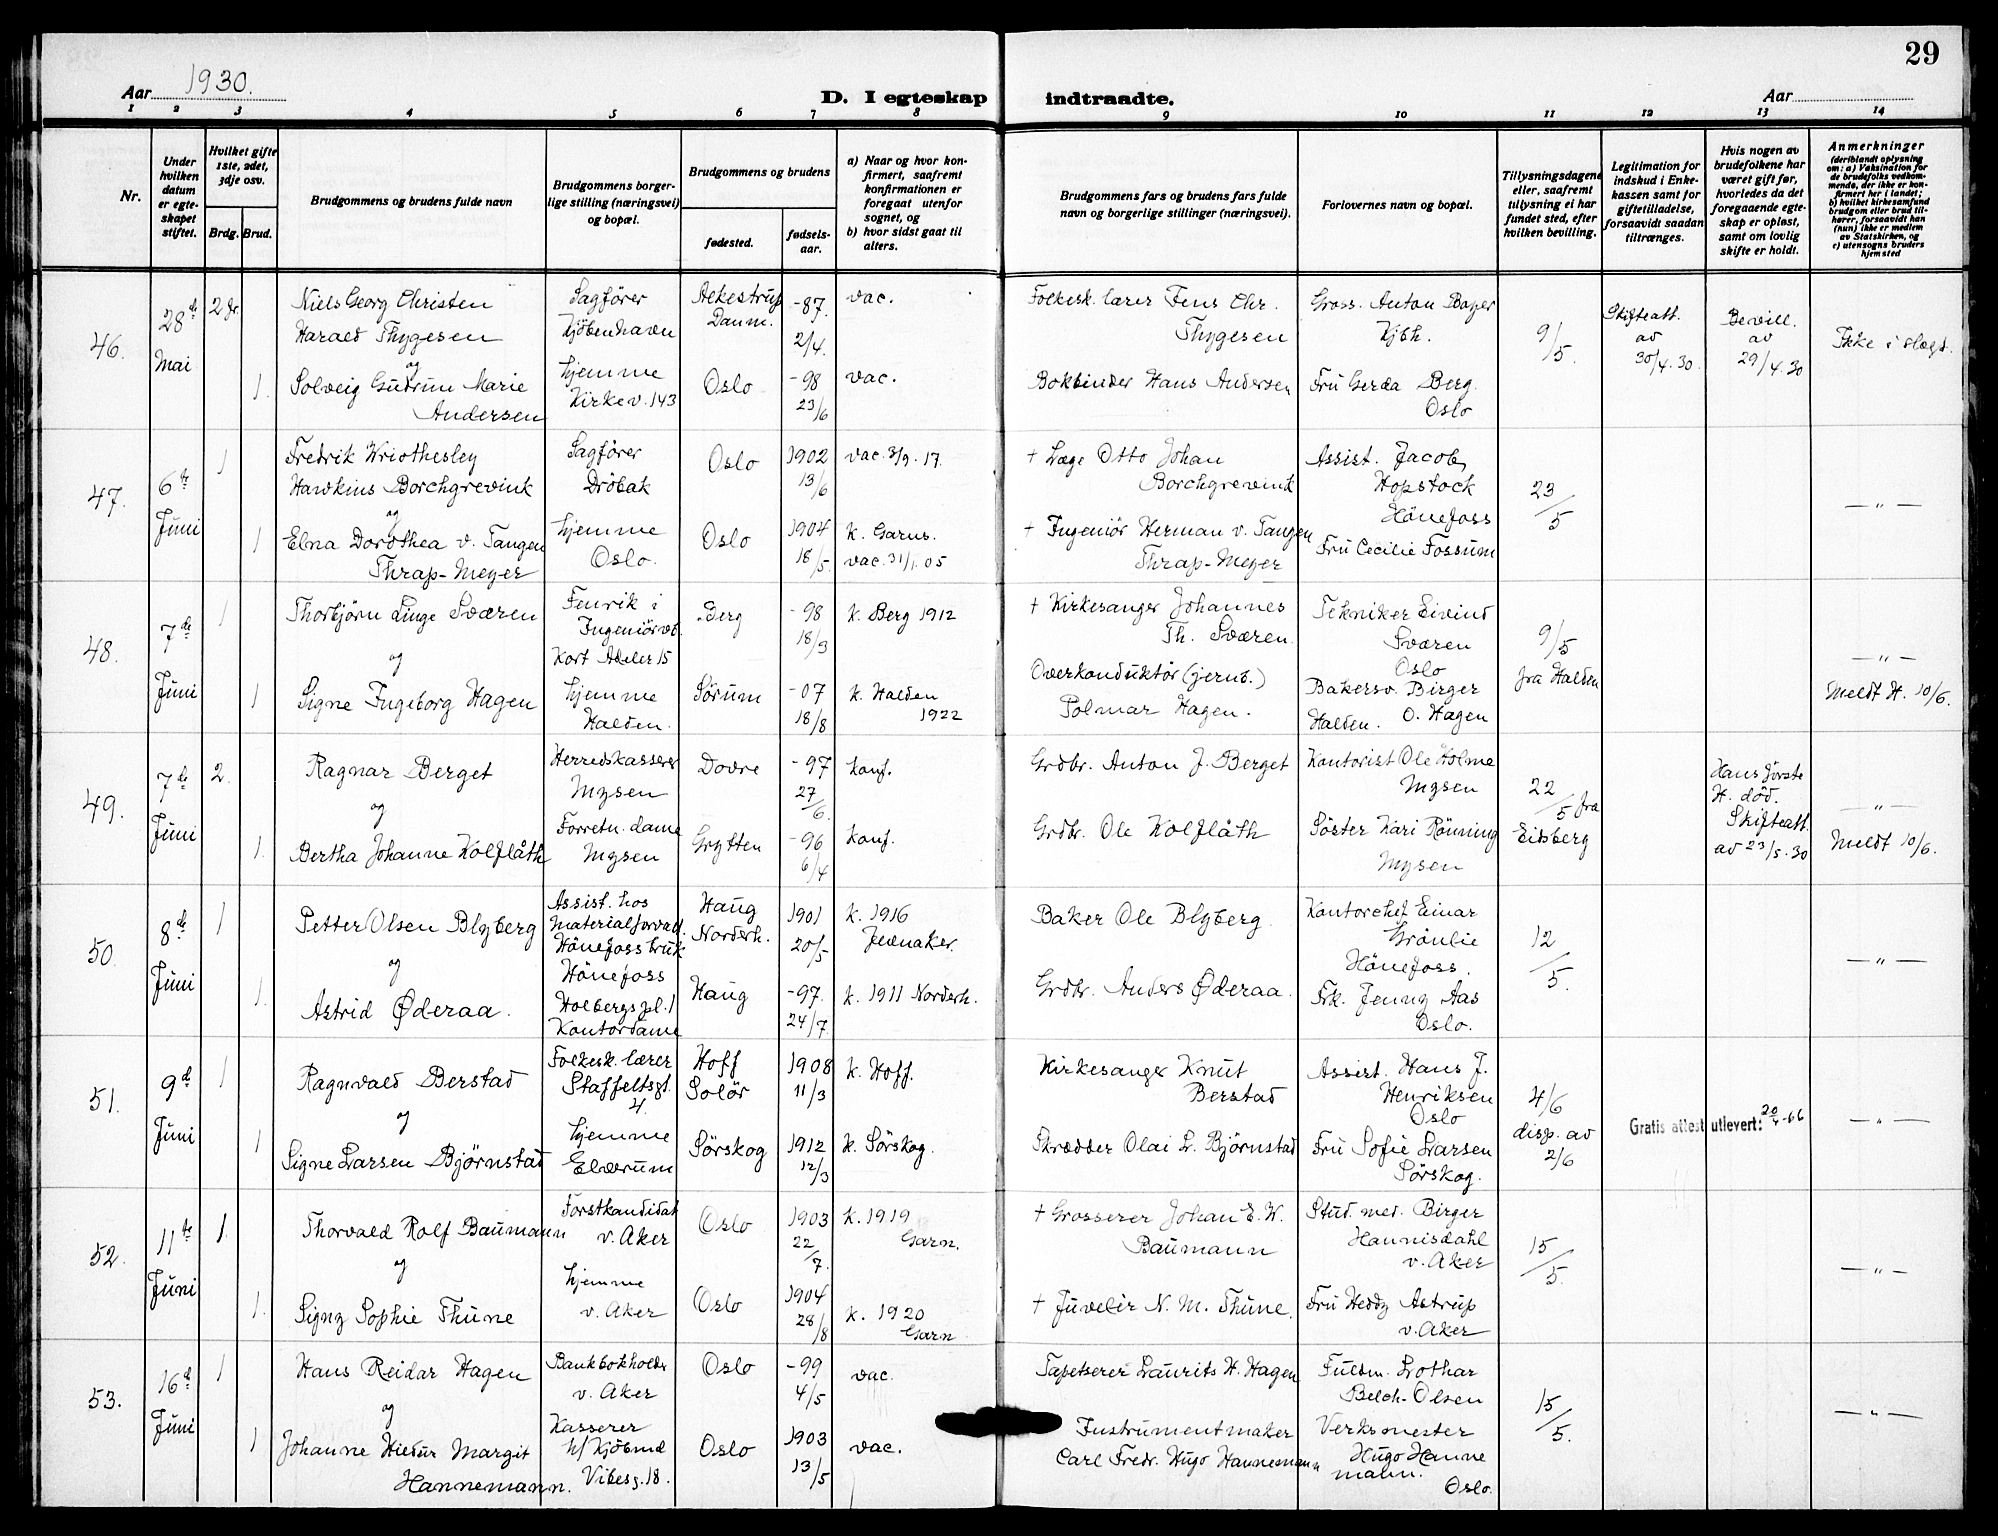 29
Aar 1930. D. I egteskap indtraadte. Aar
1 2 3 4 5 6 7 8 9 10 11 12 13 14
Nr.
Under hvilken datum er egteskapet stiftet.
Hvilket gifte 1ste, 2det, 3dje osv.
Brdg. Brud.
Brudgommens og brudens fulde navn
Brudgommens borgerlige stilling (næringsvei) og bopæl.
Brudgommens og brudens
fødested. fødselsaar.
a) Naar og hvor konfirmert, saafremt konfirmationen er foregaat utenfor sognet, og
b) hvor sidst gaat til alters.
Brudgommens fars og brudens fars fulde navn og borgerlige stillinger (næringsvei).
Forlovernes navn og bopæl.
Tillysningsdagene eller, saafremt tillysning ei har fundet sted, efter hvilken bevilling.
Legitimation for indskud i Enkekassen samt for giftetilladelse, forsaavidt saadan tiltrænges.
Hvis nogen av brudefolkene har været gift før, hvorledes da det foregaaende egteskap er opløst, samt om lovlig skifte er holdt.
Anmerkninger
(deriblandt oplysning om: a) Vaksination for de brudefolks vedkommende, der ikke er konfirmert her i landet; b) hvilket kirkesamfund brudgom eller brud tilhører, forsaavidt han (hun) ikke er medlem av Statskirken, og c) utensogns bruders hjemsted
46. 28de Mai 2 gr.
Niels Georg Christen
Harald Thygesen
og
Sagfører
Kjöbenhavn
Aekestrup
Danm.
-87.
2/4.
vac.
Folkesk. lærer Jens Chr.
Thygesen
Gross. Anton Bayer
Kjbh.
9/5.
Skifteatt.
av
30/4.30.
Bevill.
av
29/4.30
Ikke i slegt.
1.
Solveig Gudrun Marie
Andersen
hjemme
Kirkev. 143
Oslo
-98
23/6
vac.
Bokbinder Hans Andersen
Fru Gerda Berg.
Oslo
47. 6te Juni 1
Fredrik Wriothesley
Hawkins Borchgrevink
og
Sagfører
Dröbak
Oslo
1902
13/6
vac. 3/9. 17.
† Læge Otto Johan
Borchgrevink
Assist. Jacob
Hopstock
Hönefoss
23/5
— " —
1
Elna Dorothea v. Tangen
Thrap-Meyer
hjemme
Oslo.
Oslo
1904
18/5.
k. Garns.
vac. 31/1.05
† Ingeniör Herman v. Tangen
Thrap-Meyer
Fru Cecilie Fossum
48. 7de Juni 1
Thorbjörn Linge Sværen
og
Fenrik i
Ingeniörvb.
Kort Adeler 15
Berg
-98
18/3
k. Berg 1912
† Kirkesanger Johannes
Th. Sværen.
Tekniker Eivind
Sværen
Oslo
9/5
fra Halden
— " —
Meldt H. 10/6.
1
Signe Ingeborg Hagen
hjemme
Halden.
Sørum
-07
18/8
k. Halden
1922
Overkonduktör (jernb.)
Polmar Hagen.
Bakersv. Birger
Halden. O. Hagen
49. 7de Juni 2.
Ragnar Berget
og
Herredskasserer
Mysen
Dovre
-97
27/6.
konf.
Grdbr. Anton J. Berget
Kontorist Ole Holme
Mysen
22/5 fra
Eidsberg
Hans förste
H. död.
Skifteatt.
av 23/5.30
— " —
Meldt 10/6.
1.
Bertha Johanne Kolflåth
Forretn. dame
Mysen
Grytten
-96
6/4
konf.
Grdbr. Ole Kolflåth
Söster Kari Rönning
Mysen
50. 8de Juni 1
Petter Olsen Blyberg
og
Assist. hos
Materialforvad.
Hönefoss bruk
Hönefoss
Haug
Norderh.
1901
20/5
k. 1916
Jevnaker.
Baker Ole Blyberg.
Kontorchef Einar
Grönlie
Hönefoss.
12/5.
— " —
1.
Astrid Øderaa.
Holbergs pl. 1
Kontordame
Haug
-97.
24/7.
k. 1911 Norderh.
Grdbr. Anders Øderaa.
Frk. Jenny Aas
Oslo.
51. 9de Juni 1
Ragnvald Berstad
og
Folkesk. lærer
Staffeltsgt.
4.
Hoff
Solör
1908
11/3
k. Hoff.
Kirkesanger Knut
Berstad
Assist. Hans J.
Henriksen
Oslo
4/6
disp. av
2/6
Gratis attest utlevert: 20/4-66
— " —
1
Signe Larsen Björnstad
hjemme
Elverum
Sørskog
1912
12/3
k. Sørskog.
Skrædder Olai L. Björnstad
Fru Sofie Larsen
Sørskog.
52. 11te Juni 1.
Thorvald Rolf Baumann
og
Forstkandidat
v. Aker
Oslo
1903
22/7.
k. 1919
Garn.
† Grosserer Johan E. W.
Baumann
Stud. med. Birger
Hannisdahl
v. Aker
15/5.
— " —
1.
Signy Sophie Thune
hjemme
v. Aker
Oslo
1904
28/8
k. 1920
Garn
† Juvelér N. M. Thune.
Fru Heddy Astrup
v. Aker
53. 16de Juni 1
Hans Reidar Hagen
og
Bankbokholder
v. Aker
Oslo
-99
4/5
vac.
Tapetserer Laurits H. Hagen
Fuldm. Lothar
Belch-Olsen
15/5.
— " —
1
Johanne Hildur Margit
Hannemann.
Kasserer
h/ Kjöbmd
Vibesg. 18.
Oslo
1903
13/5
vac.
Instrumentmaker
Carl Fredr. Hugo Hannemann
Verksmester
Hugo Hanne
mann.
Oslo.